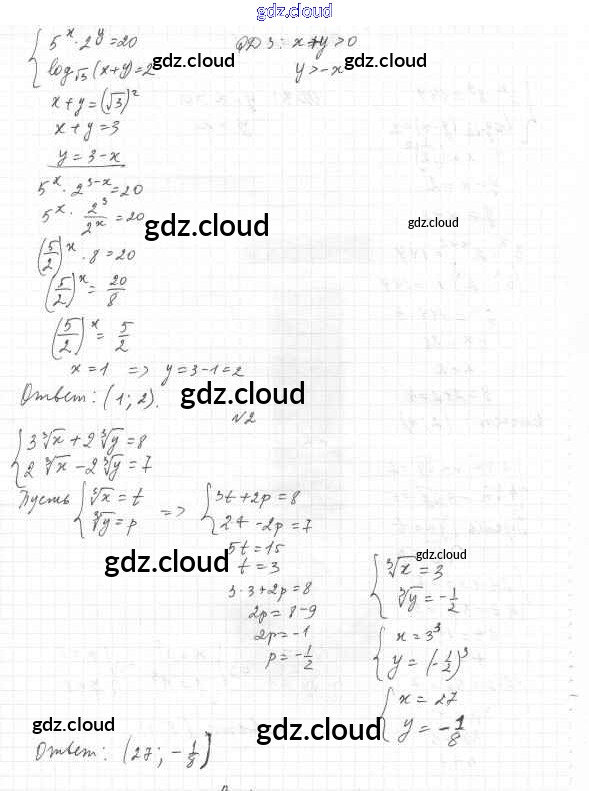 gdz.cloud
{ 5^x · 2^y = 20    ОДЗ: x+y>0
{ log_√3 (x+y) = 2    y>-x
gdz.cloud gdz.cloud
x+y = (√3)^2
x+y = 3
y = 3-x
5^x · 2^(3-x) = 20
5^x · 2^3/2^x = 20
gdz.cloud gdz.cloud
(5/2)^x · 8 = 20
(5/2)^x = 20/8
(5/2)^x = 5/2
x = 1 => y = 3-1 = 2
Ответ: (1; 2).
gdz.cloud
№2
{ 3 ∛x + 2 ∛y = 8
{ 2 ∛x - 2 ∛y = 7
Пусть { ∛x = t    => { 3t + 2p = 8
{ ∛y = p    { 2t - 2p = 7
gdz.cloud
5t = 15
t = 3
3·3+2p = 8
2p = 8-9
2p = -1
p = -1/2
gdz.cloud
{ ∛x = 3
{ ∛y = -1/2
{ x = 3^3
{ y = (-1/2)^3
{ x = 27
{ y = -1/8
gdz.cloud gdz.cloud
Ответ: (27; -1/8)